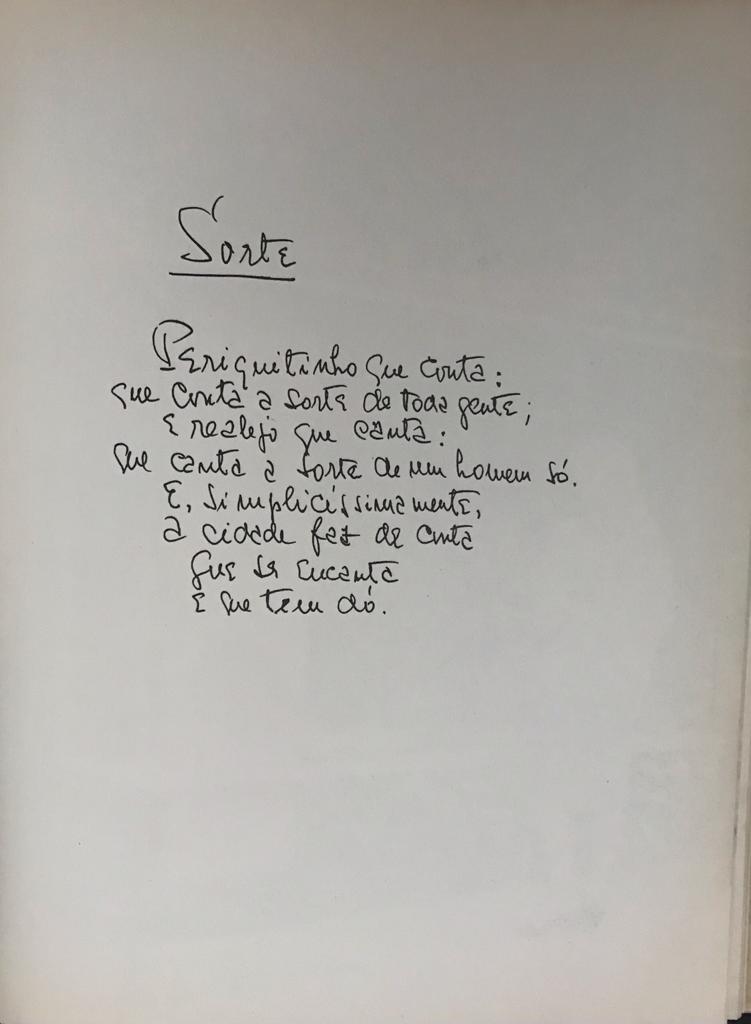 Sorte
Periquitinho que conta:
que conta a sorte de toda gente;
e realejo que canta:
que canta a sorte de um homem só.
E, simplicíssimamente,
a cidade faz de conta
que se encanta
e que tem dó.